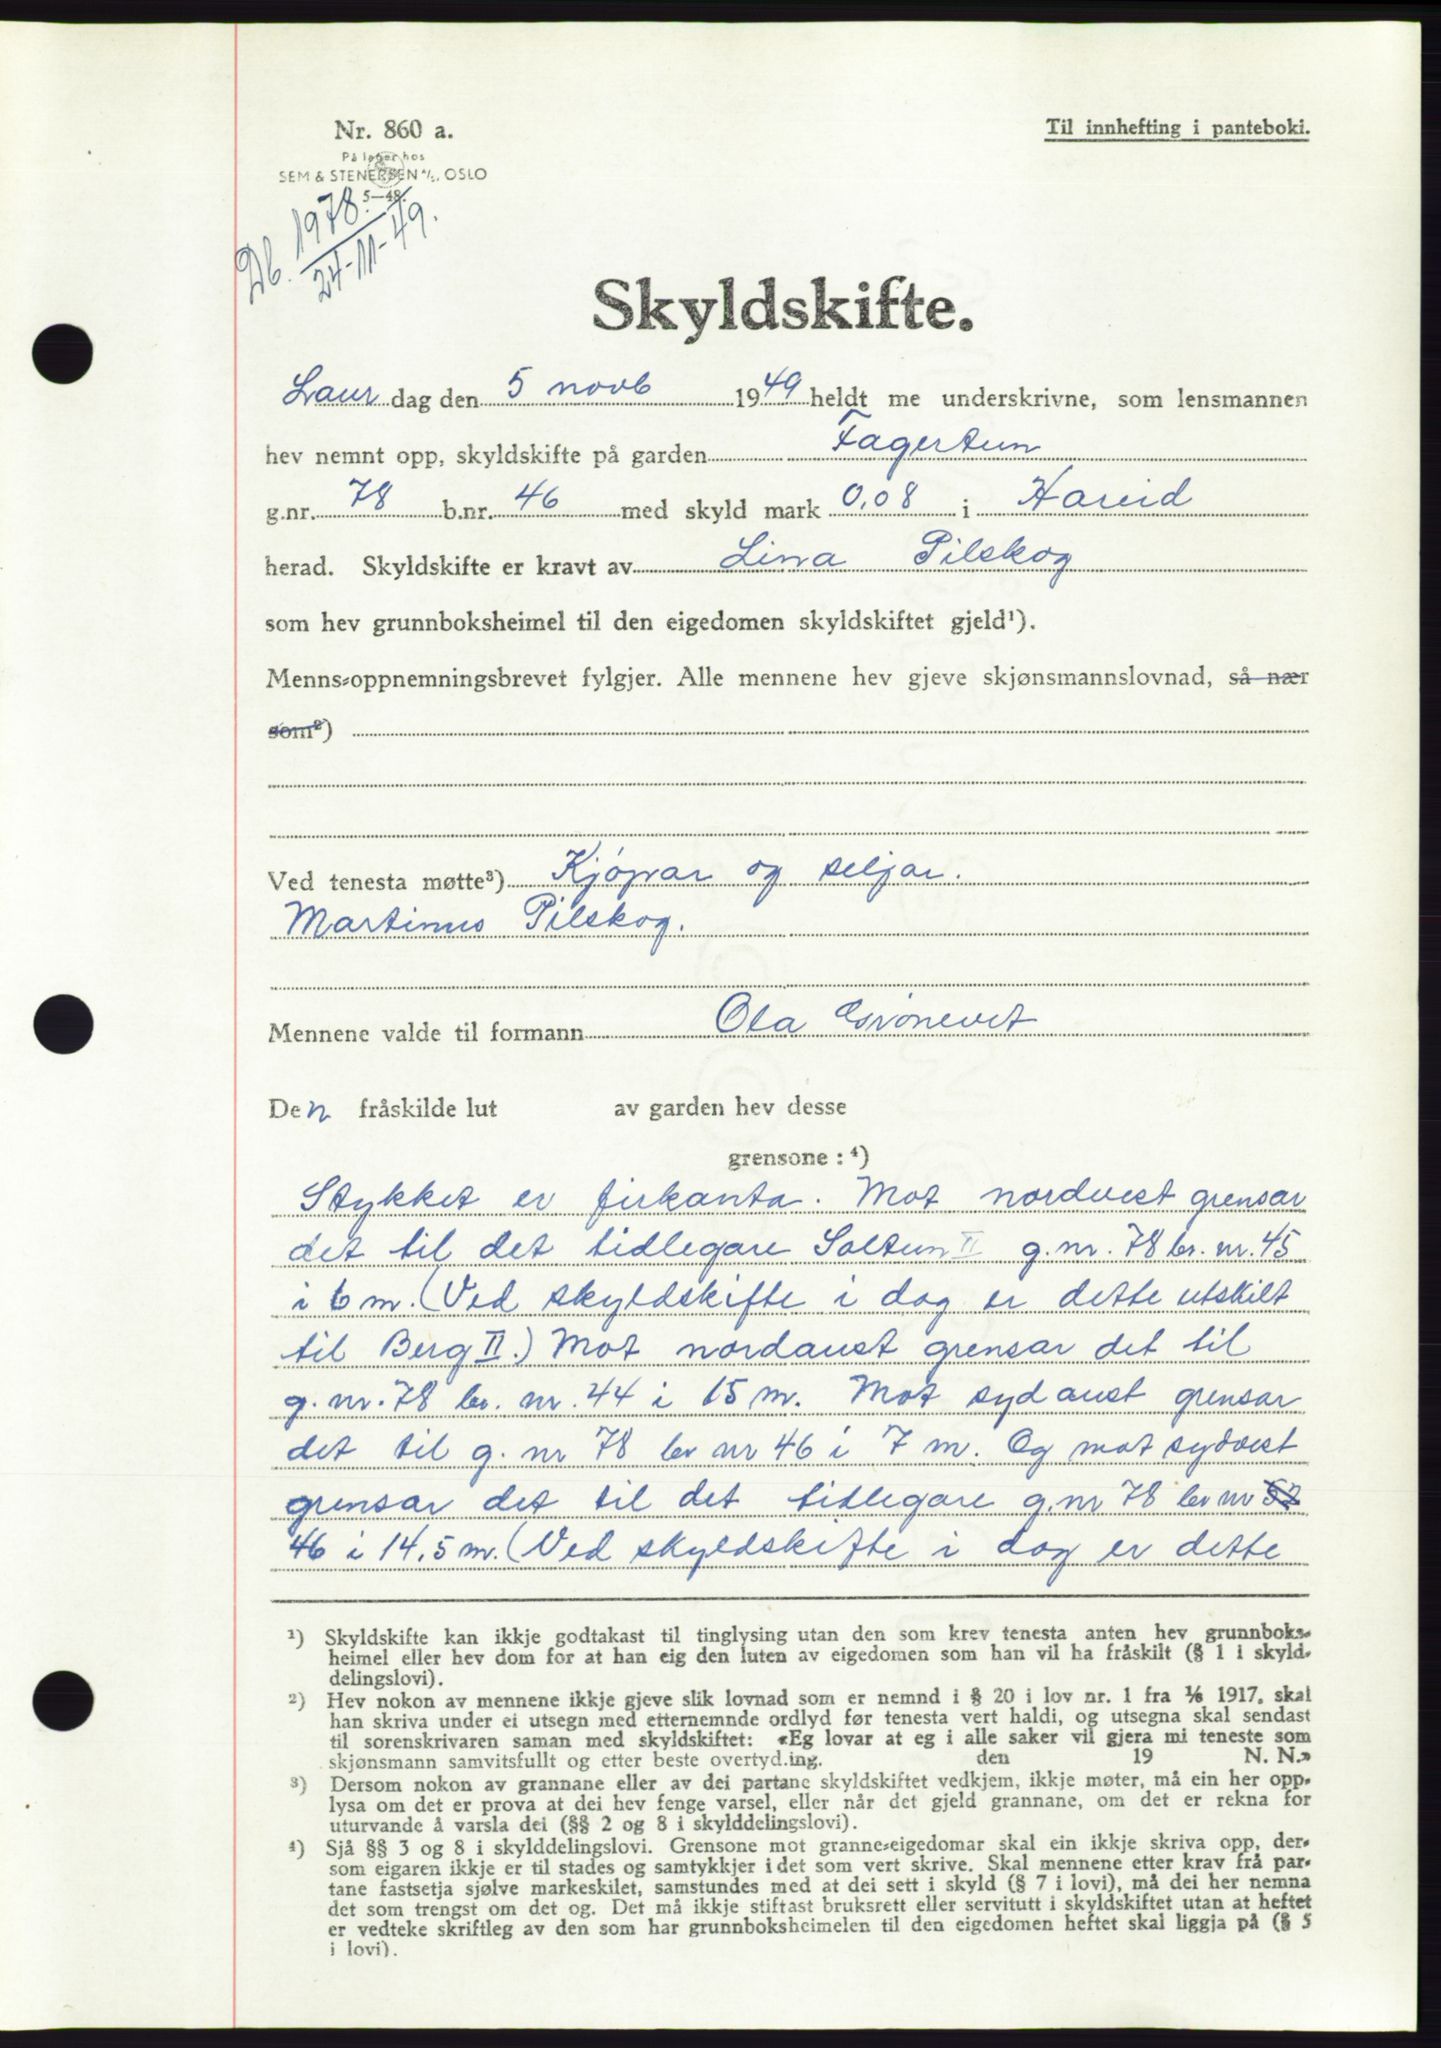 Nr. 860 a.
Til innhefting i panteboki.
På lager hos
SEM & STENERSEN A/S, OSLO
5—48.
Db. 1978
24-11-49.
Skyldskifte.
Laur dag den 5 novb 1949 heldt me underskrivne, som lensmannen
hev nemnt opp, skyldskifte på garden Fagertun
g.nr. 78 b.nr. 46 med skyld mark 0,08 i Hareid
herad. Skyldskifte er kravt av Lina Pilskog
som hev grunnboksheimel til den eigedomen skyldskiftet gjeld¹).
Menns-oppnemningsbrevet fylgjer. Alle mennene hev gjeve skjønsmannslovnad, så nær
som²)
Ved tenesta møtte³) Kjöpar og seljar.
Martinus Pilskog.
Mennene valde til formann Ola Grönevet
Den fråskilde lut av garden hev desse
grensone : ⁴)
Stykket er firkanta. Mot nordvest grensar
det til det tidlegare Soltun II g.nr. 78 br. nr. 45
i 6 m. (Ved skyldskifte i dag er dette utskilt
til Berg II.) Mot nordaust grensar det til
g. nr. 78 br. nr. 44 i 15 m. Mot sydaust grensar
det til g. nr 78 br nr 46 i 7 m. Og mot sydvest
grensar det til det tidlegare g.nr 78 br nr 52
46 i 14,5 m. (Ved skyldskifte i dag er dette
¹) Skyldskifte kan ikkje godtakast til tinglysing utan den som krev tenesta anten hev grunnboks-
heimel eller hev dom for at han eig den luten av eigedomen som han vil ha fråskilt (§ 1 i skyld-
delingslovi).
²) Hev nokon av mennene ikkje gjeve slik lovnad som er nemnd i § 20 i lov nr. 1 fra ⅙ 1917, skal
han skriva under ei utsegn med etternemnde ordlyd før tenesta vert haldi, og utsegna skal sendast
til sorenskrivaren saman med skyldskiftet: «Eg lovar at eg i alle saker vil gjera mi teneste som
skjønsmann samvitsfullt og etter beste overtyding. den 19 N. N.»
³) Dersom nokon av grannane eller av dei partane skyldskiftet vedkjem, ikkje møter, må ein her opp-
lysa om det er prova at dei hev fenge varsel, eller når det gjeld grannane, om det er rekna for
uturvande å varsla dei (§§ 2 og 8 i skylddelingslovi).
⁴) Sjå §§ 3 og 8 i skylddelingslovi. Grensone mot granne-eigedomar skal ein ikkje skriva opp, der-
som eigaren ikkje er til stades og samtykkjer i det som vert skrive. Skal mennene etter krav frå par-
tane fastsetja sjølve markeskilet, samstundes med at dei sett i skyld (§ 7 i lovi), må dei her nemna
det som trengst om det og. Det må ikkje stiftast bruksrett eller servitutt i skyldskiftet utan at heftet
er vedteke skriftleg av den som har grunnboksheimelen til den eigedomen heftet skal liggja på (§ 5
i lovi).